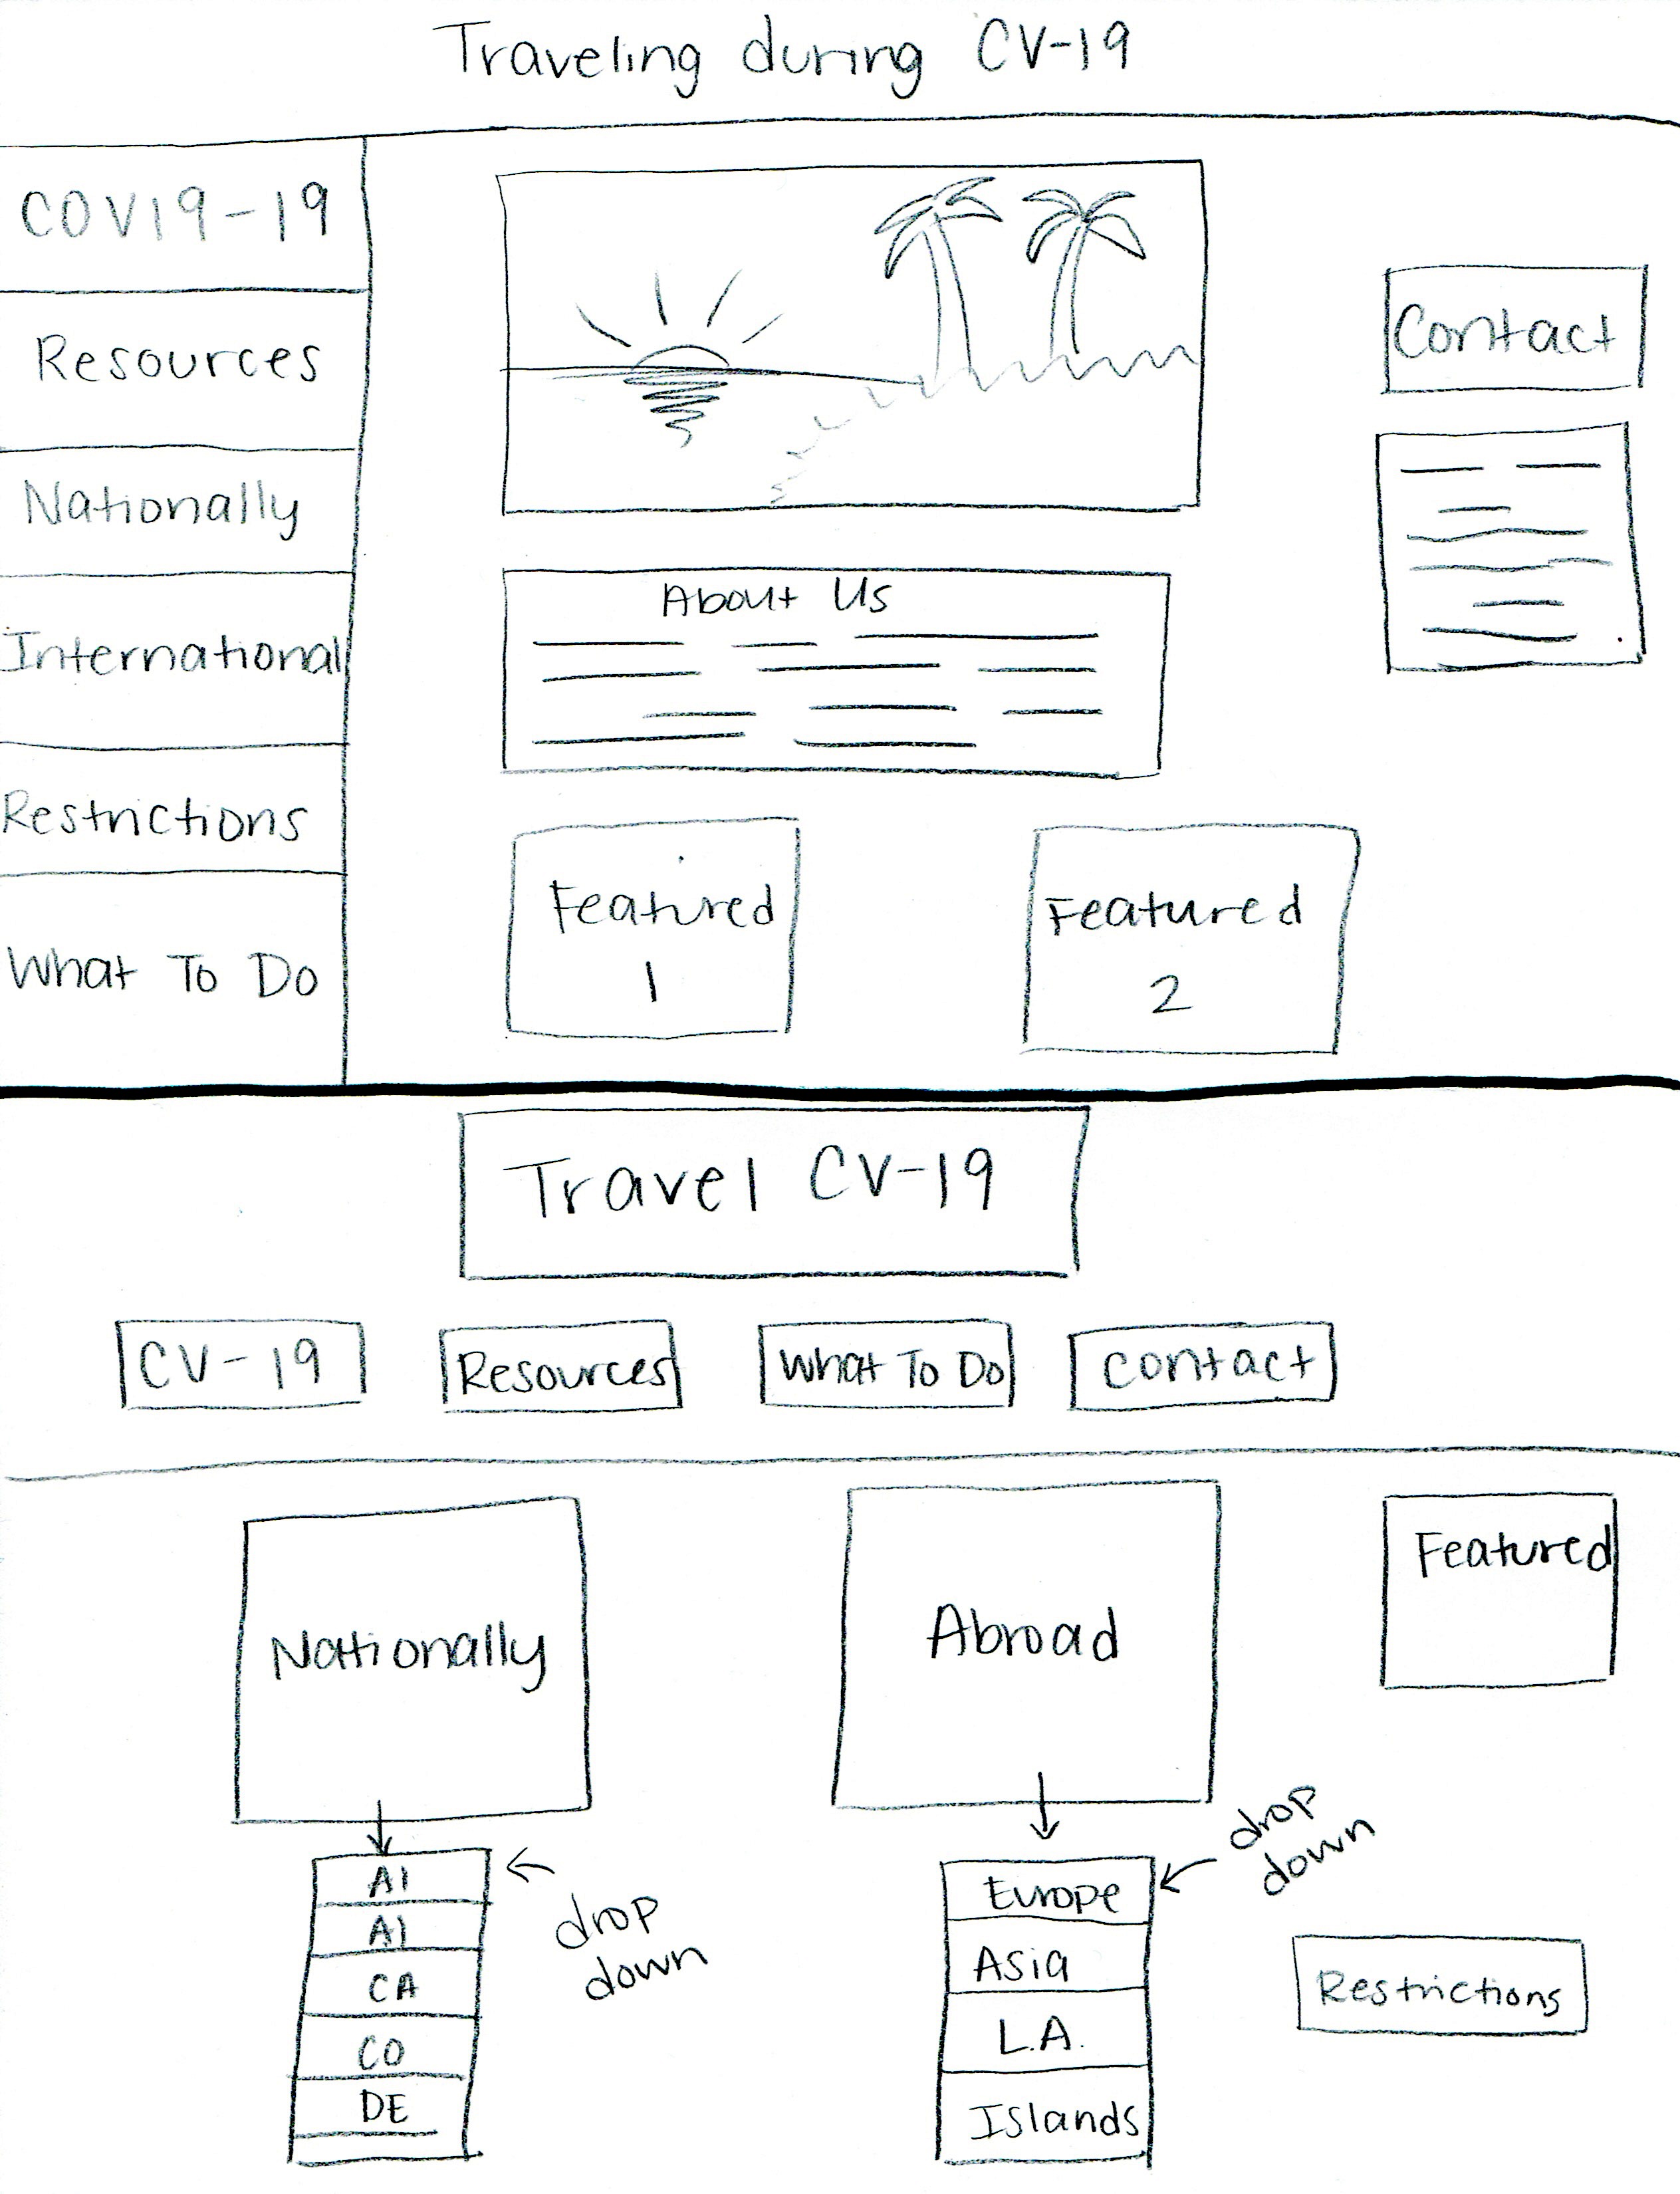 Traveling during CV-19
COV19-19
Resources
Nationally
International
Restrictions
What To Do
Contact
About Us
Featured
1
Featured
2
Travel CV-19
CV-19
Resources
What To Do
Contact
Nationally
Abroad
Featured
Al
Al
CA
CO
DE
drop
down
Europe
Asia
L.A.
Islands
drop
down
Restrictions